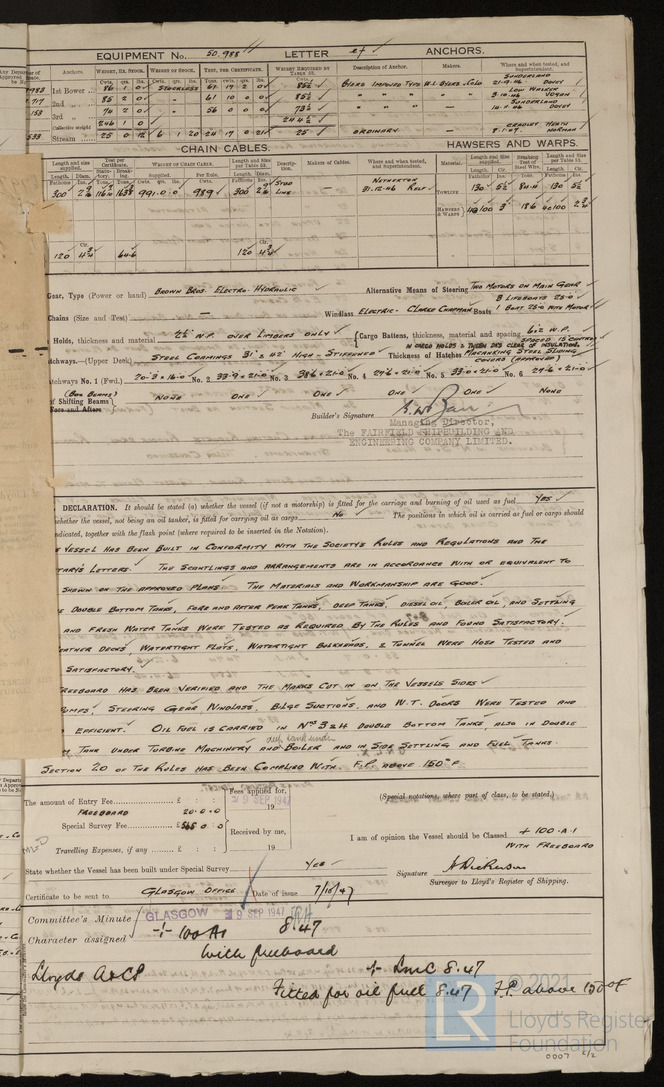 EQUIPMENT No. 50.988 LETTER ef ANCHORS.
Anchors. WEIGHT, EX. STOCK. WEIGHT OF STOCK. TEST, PER CERTIFICATE. WEIGHT REQUIRED BY TABLE 53. Description of Anchor. Makers. Where and when tested, and Superintendent.
1st Bower 86 1 0 STOCKLESS 61 17 2 0 85½ BYERS IMPROVED TYPE W.L. BYERS & CO LD SUNDERLAND
2nd 85 2 0 61 10 0 0 85½ LOW WALKER
3rd 74 2 0 56 0 0 0 73½ SUNDERLAND
Collective weight 246 1 0 244½
Stream 25 0 12 6 1 20 24 17 0 21 25 ORDINARY CRADLEY HEATH
CHAIN CABLES. HAWSERS AND WARPS.
Length and size supplied. Test per Certificate. WEIGHT OF CHAIN CABLE. Length and size per Table 53. Description. Makers of Cables. Where and when tested, and Superintendent. Material. Length and size supplied. Breaking Test of Steel Wire. Length and size per Table 53.
Supplied. Per Rule.
300 991.0.0 989 300 STUD LINK NETHERTON 31.12.46 TOWLINE 130 5½ 130 5½
HAWSERS & WARPS 100 3 18.6 100
120 64.6 120
Gear, Type (Power or hand) BROWN BROS. ELECTRO-HYDRAULIC Alternative Means of Steering TWO MOTORS ON MAIN GEAR
Chains (Size and Test) Windlass ELECTRIC - CLARKE CHAPMAN Boats 3 LIFEBOATS 1 BOAT WITH MOTOR
Holds, thickness and material 2½" W.P. OVER LIMBERS ONLY Cargo Battens, thickness, material and spacing 6×2 W.P.
tchways.—(Upper Deck) STEEL COAMINGS 31" & 42" HIGH - STIFFENED Thickness of Hatches MACANKING STEEL SLIDING COVERS (APPROVED)
tchways No. 1 (Fwd.) 20-3 × 16-0 No. 2 33-9 × 21-0 No. 3 38-6 × 21-0 No. 4 No. 5 33-0 × 21-0 No. 6 27-6 × 21-0
(BOX BEAMS) of Shifting Beams Fore and Afters NONE ONE ONE ONE ONE NONE
Builder's Signature
Managing Director,
The FAIRFIELD SHIPBUILDING AND
ENGINEERING COMPANY LIMITED.
DECLARATION. It should be stated (a) whether the vessel (if not a motorship) is fitted for the carriage and burning of oil used as fuel YES
whether the vessel, not being an oil tanker, is fitted for carrying oil as cargo No The positions in which oil is carried as fuel or cargo should
indicated, together with the flash point (where required to be inserted in the Notation).
VESSEL HAS BEEN BUILT IN CONFORMITY WITH THE SOCIETY'S RULES AND REGULATIONS AND THE
TARY'S LETTERS. THE SCANTLINGS AND ARRANGEMENTS ARE IN ACCORDANCE WITH OR EQUIVALENT TO
SHOWN ON THE APPROVED PLANS. THE MATERIALS AND WORKMANSHIP ARE GOOD.
DOUBLE BOTTOM TANKS, FORE AND AFTER PEAK TANKS, DEEP TANKS, DIESEL OIL, BOILER OIL, AND SETTLING
AND FRESH WATER TANKS WERE TESTED AS REQUIRED BY THE RULES AND FOUND SATISFACTORY.
EATHER DECKS, WATERTIGHT FLATS, WATERTIGHT BULKHEADS, & TUNNEL WERE HOSE TESTED AND
SATISFACTORY.
REEBOARD HAS BEEN VERIFIED AND THE MARKS CUT IN ON THE VESSELS SIDES
UMPS, STEERING GEAR, WINDLASS, BILGE SUCTIONS, AND W.T. DOORS WERE TESTED AND
EFFICIENT. OIL FUEL IS CARRIED IN Nos 3 & 4 DOUBLE BOTTOM TANKS, ALSO IN DOUBLE
deep tank under
TANK UNDER TURBINE MACHINERY AND BOILER AND IN SIDE SETTLING AND FUEL TANKS.
SECTION 20 OF THE RULES HAS BEEN COMPLIED WITH. F.P. ABOVE 150°F
The amount of Entry Fee £ : : Fees applied for,
FREEBOARD 20.0.0 9 SEP 1947 19
Special Survey Fee £ 565 0 0 Received by me,
Travelling Expenses, if any £ : : 19
(Special notations, where part of class, to be stated.)
I am of opinion the Vessel should be Classed + 100 A 1
WITH FREEBOARD
State whether the Vessel has been built under Special Survey YES
Signature
Surveyor to Lloyd's Register of Shipping.
Certificate to be sent to GLASGOW OFFICE Date of issue 7/10/47
Committee's Minute GLASGOW 9 SEP 1947
Character assigned + 100 A1 8.47
With freeboard
Lloyds A & CP + LMC 8.47
Fitted for oil fuel 8.47 F.P. above 150°F
LR
© 2021
Lloyd's Register
Foundation
0007 2/2